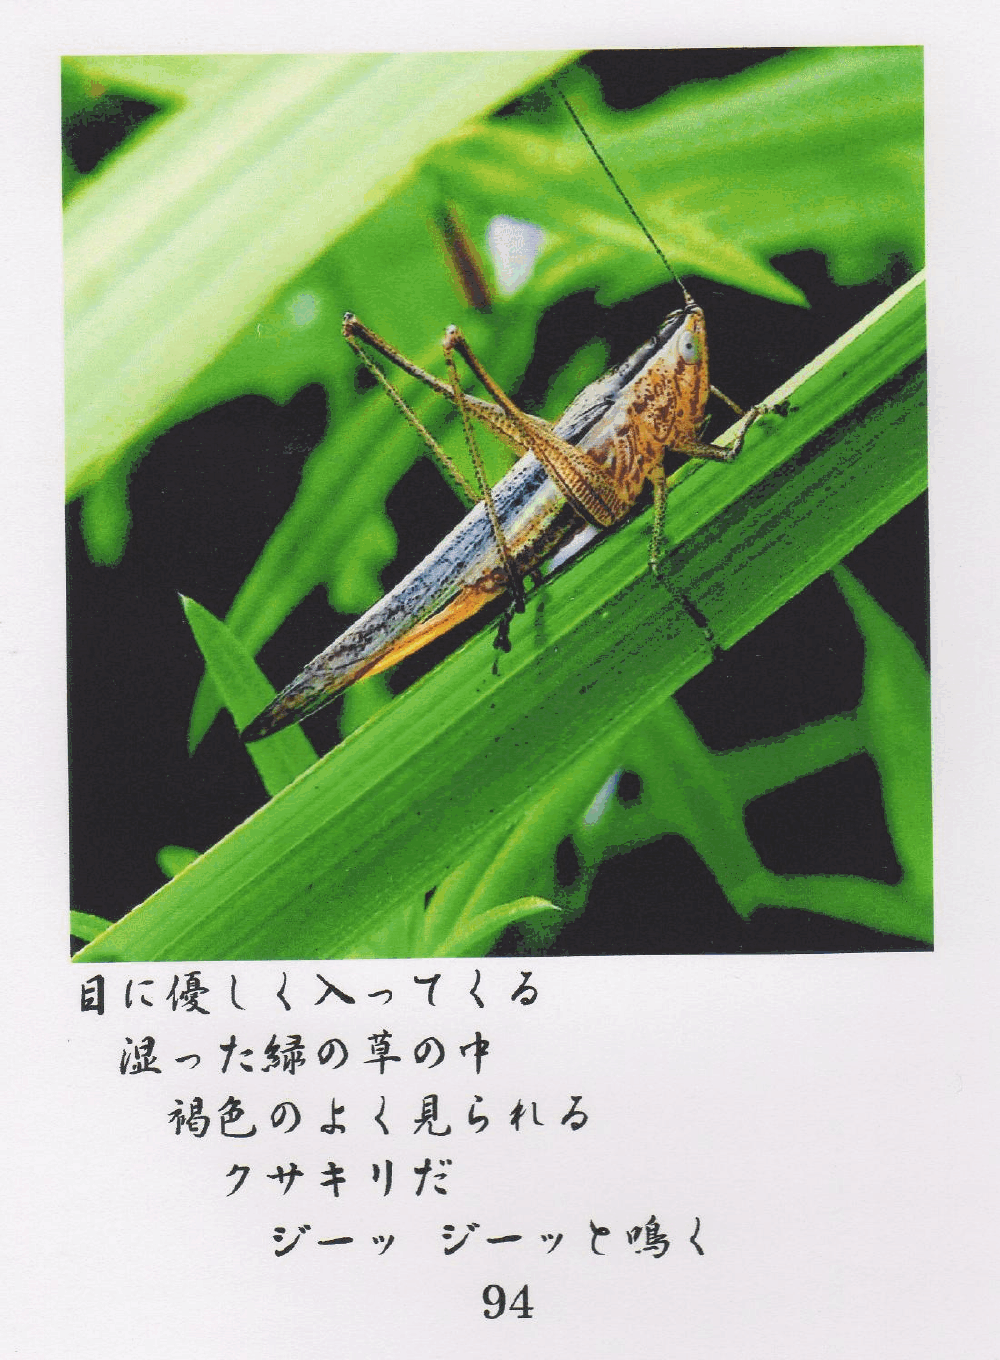 目に優しく入ってくる
湿った緑の草の中
褐色のよく見られる
クサキリだ
ジーッ ジーッと鳴く
94